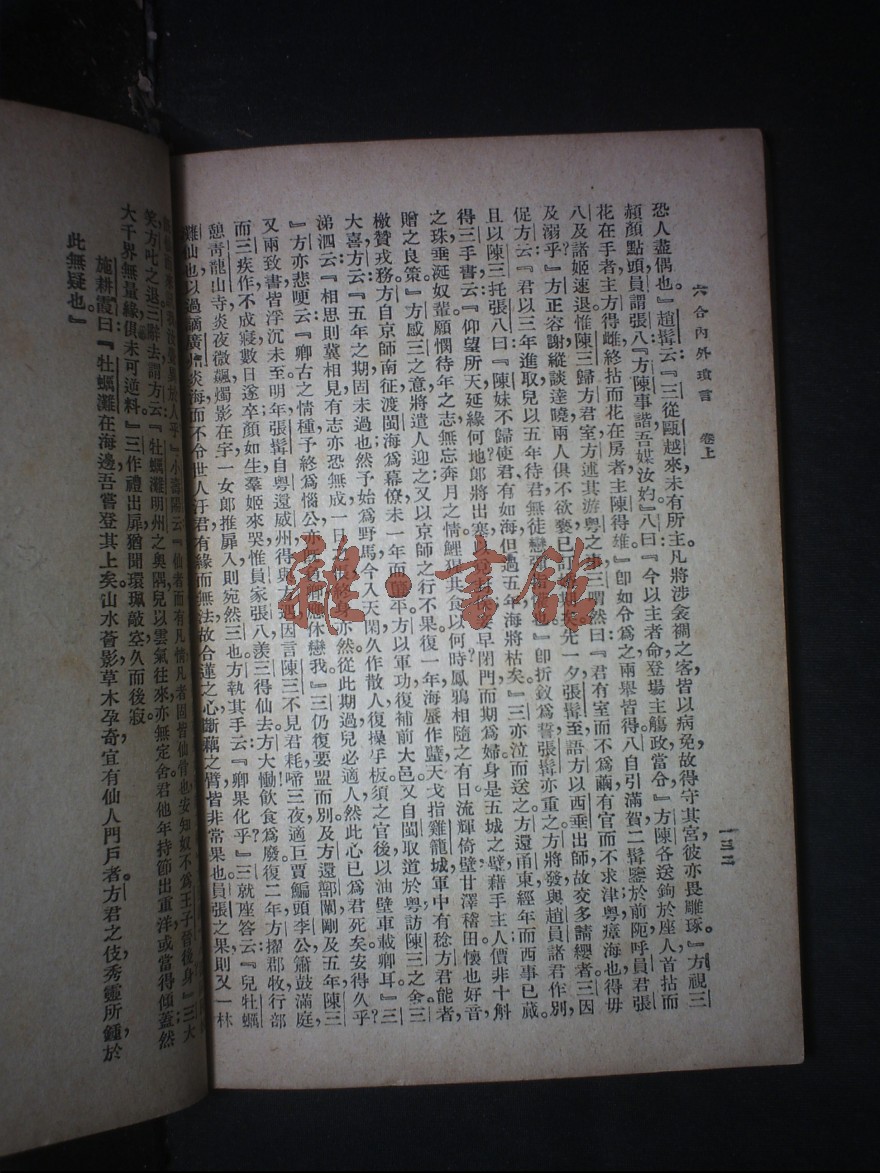 六合內外瑣言　卷上
一三二
恐人盡偶也』趙髯云『三從甌越來未有所主凡將涉衾裯之客皆以病免故得守其宮彼亦畏雕琢。』方視三
頳顏點頭員謂張八『方陳事諧吾媒汝妁』八曰『今以主者命登場主觴政當令。』方陳各送鉤於座人首拈而
花在手者主方得雌終拈而花在房者主陳得雄』卽如令爲之兩舉皆得八自引滿賀二髯鑒於前阨呼員君張
八及諸姬速退惟陳三歸方君室方述其游粵之事三喟然曰『君有室而不爲繭有官而不求津粵瘴海也得毋
及溺乎』方正容謝縱談達曉兩人俱不欲褻已訂婚期矣先一夕張髯至語方以西垂出師故交多請纓者三因
促方云『君以三年進取兒以五年待君無徒戀 也』卽折釵爲誓張髯亦重之方將發與趙員諸君作別，
且以陳三托張八曰『陳妹不歸使君有如海但過五年海將枯矣』三亦泣而送之方還甬東經年而西事已蕆。
得三手書云『仰望所天延緣何地郎將出塞以 早閉門而期爲婦身是五城之璧藉手主人價非十斛
之珠垂涎奴輩願憫待年之志無忘奔月之情鯉狽其食以何時鳳鴉相隨之有日流輝倚壁甘澤稽田懷也好音
贈之良策』方感三之意將遣人迎之又以京師之行不果復一年海蜃作孽天戈指雞龍城軍中有稔方君能者
檄贊戎務方自京師南征渡閩海爲幕僚未一年而 平方以軍功復補前大邑又自閩取道於粵訪陳三之舍三
大喜方云『五年之期固未過也然予始爲野馬今入天閑久作散人復操手板須之官後以油壁車載卿耳』三
涕泗云『相思則冀相見有志亦恐無成一日 終身亦然從此期過兒必適人然此心已爲君死矣安得久乎？
』方亦悲哽云『卿古之情種予終爲惱公亦 應休戀我』三仍復要盟而別及方還部闌剛及五年陳三
又兩致書皆浮沉未至明年張髯自粵還威州得與方遇因言陳三不見君耗啼三夜適巨賈鯿頭李公簫鼓滿庭
而三疾作不成寢數日遂卒顏如生羣姬來哭惟員家張八羨三得仙去方大慟飮食爲廢復二年方擢郡牧行部
憩靑龍山寺炎夜微飆燭影在宇一女郎推扉入則宛然三也方執其手云『卿果化乎？』三就座答云『兒牡蠣
灘仙也以過謫廣州炎海而不令世人汙君有緣而無法故合蓮之心斷藕之臂皆非常果也員張之果則又一林
於人乎』小壽陽云『仙者而有凡情凡者固皆仙骨也安知奴不爲王子晉後身』三大
笑方叱之退三辭去謂方云『牡蠣灘明州之奥隅兒以雲氣往來亦無定舍君他年持節出重洋或當得傾蓋然
大千界無量緣俱未可逆料』三作禮出扉猶聞環珮敲空久而後寂
施耕霞曰『牡蠣灘在海邊吾嘗登其上矣山水薈影草木孕奇宜有仙人門戶者方君之伎秀靈所鍾於
此無疑也』
雜·書館